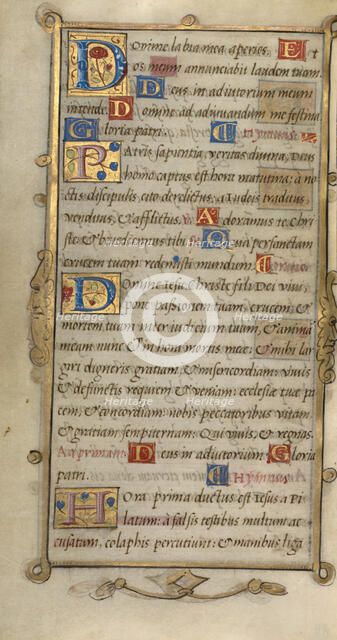 Domine labia mea aperies. Et
os meum annunciabit laudem tuam.
Deus in adiutorium meum
intende. Domine ad adiuuandum me festina.
Gloria patri.
PAtris sapientia, veritas diuina, Deus
homo captus est hora matutina: a no
ctis discipulis cito derelictus, a Iudeis traditus,
venditus, & afflictus. V. Adoramus te Chri
ste, & benedicimus tibi. Quia per sanctam
crucem tuam redemisti mundum.
DOmine Iesu Christe fili Dei viui,
pone passionem tuam, crucem, &
mortem tuam inter iudicium tuum, & anima
meam nunc & in hora mortis meæ: & mihi lar
giri digneris gratiam, & misericordiam: viuis
& defunctis requiem & veniam: ecclesiæ tuæ pa
cem, & concordiam: nobis peccatoribus vitam
& gratiam sempiternam. Qui viuis, & regnas.
Ad primam. Deus in adiutorium. Gloria
patri. Hymnus
HOra prima ductus est Iesus a Pi
latum: à falsis testibus multum ac
cusatum, colaphis percutiunt: & manibus liga
Heritage
Images